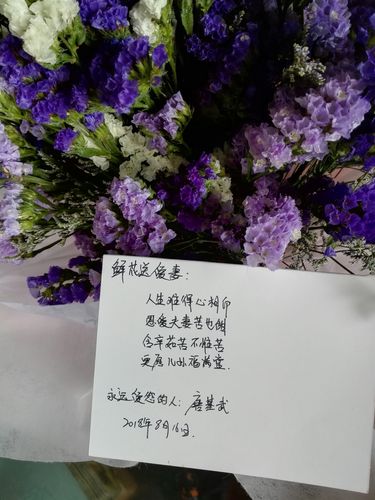 鲜花送爱妻：
人生难得心相印
恩爱夫妻苦也甜
含辛茹苦不惟苦
更愿儿孙福满堂.
永远爱您的人：唐基武
2018年8月16日.